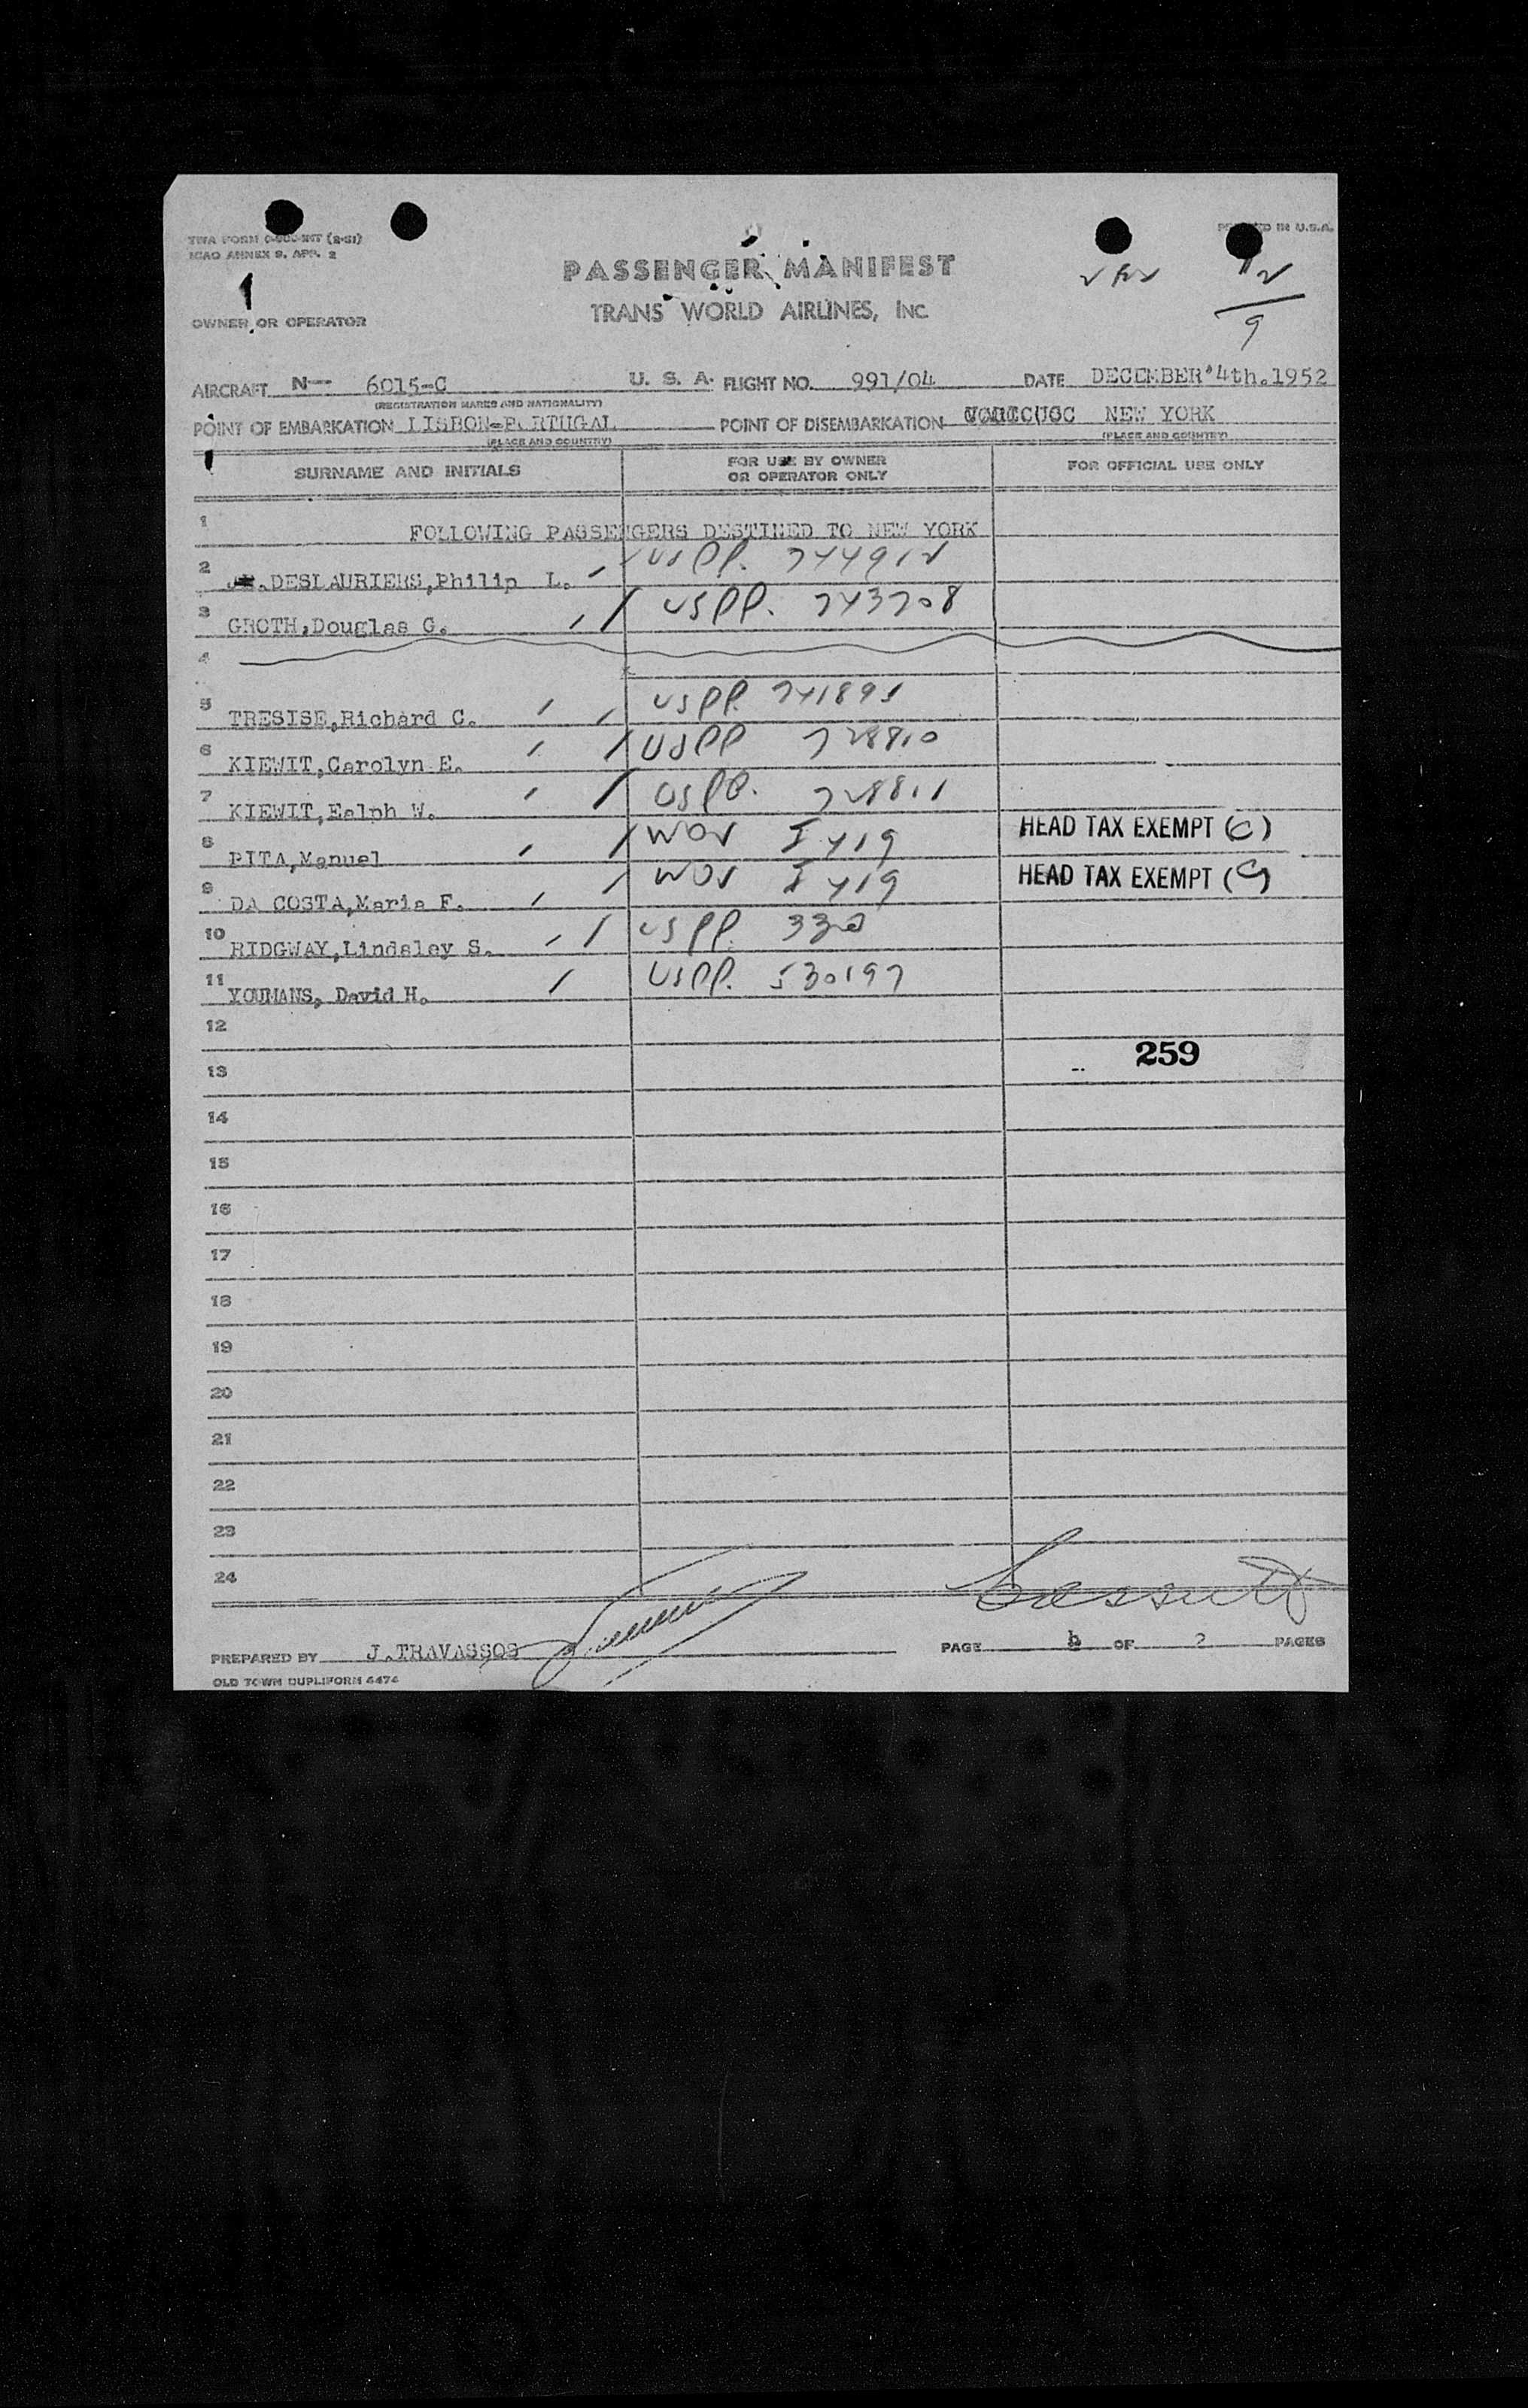 TWA FORM
ICAO ANNEX 9, APP. 2
PRINTED IN U.S.A.
1
PASSENGER MANIFEST
TRANS WORLD AIRLINES, INC.
9
OWNER OR OPERATOR
AIRCRAFT N-- 6015-C U. S. A. FLIGHT NO. 991/04 DATE DECEMBER 4th.1952
(REGISTRATION MARKS AND NATIONALITY)
POINT OF EMBARKATION LISBON-PORTUGAL POINT OF DISEMBARKATION NEW YORK
(PLACE AND COUNTRY) (PLACE AND COUNTRY)
SURNAME AND INITIALS FOR USE BY OWNER OR OPERATOR ONLY FOR OFFICIAL USE ONLY
1 FOLLOWING PASSENGERS DESTINED TO NEW YORK
2 DESLAURIERS,Philip L. USPP. 744912
3 GROTH,Douglas G. USPP. 743708
4
5 TRESISE,Richard C. USPP. 741891
6 KIEWIT,Carolyn E. USPP 728810
7 KIEWIT,Ralph W. USPP. 728811
8 PITA,Manuel I 419 HEAD TAX EXEMPT (C)
9 DA COSTA,Maria F. I 419 HEAD TAX EXEMPT (C)
10 RIDGWAY,Lindsley S. USPP. 332
11 YOUMANS, David H. USPP. 530197
12
259
13
14
15
16
17
18
19
20
21
22
23
24
PREPARED BY J.TRAVASSOS PAGE OF 2 PAGES
OLD TOWN DUPLIFORM 4474